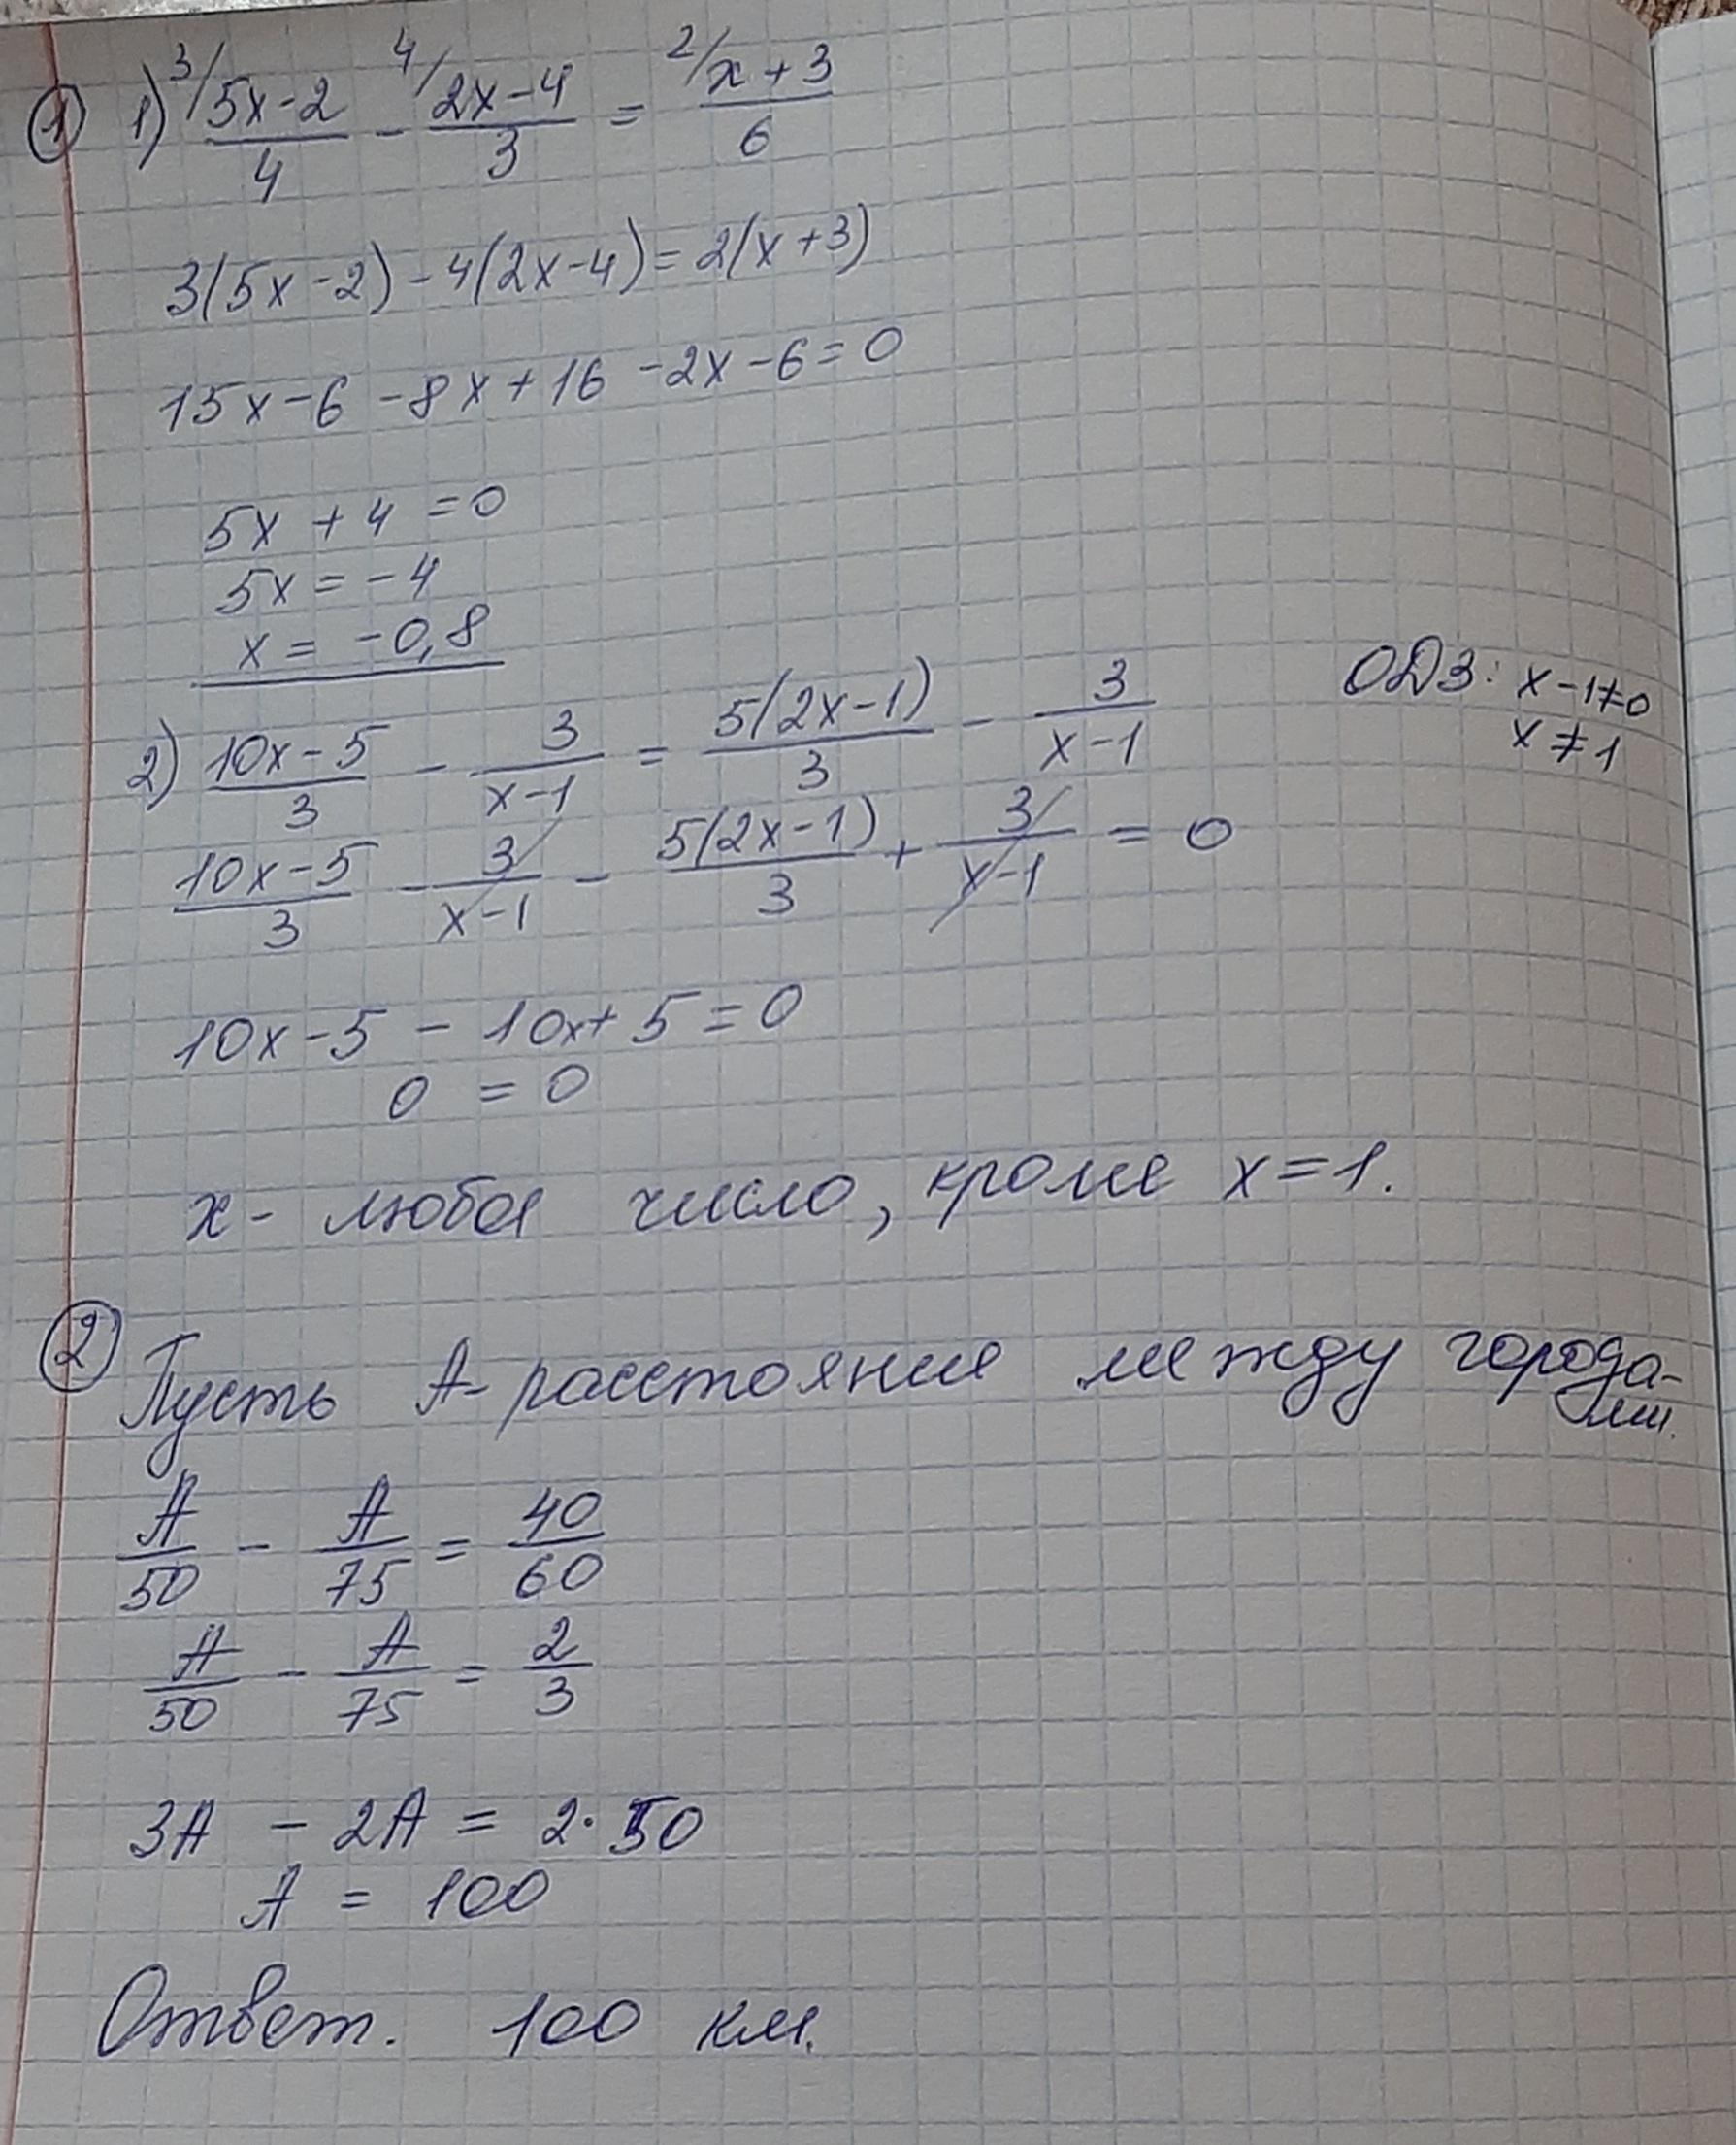 ① 1) ³/ (5x-2)/4 - ⁴/ (2x-4)/3 = ²/ (x+3)/6
3(5x-2)-4(2x-4)=2(x+3)
15x-6-8x+16-2x-6=0
5x+4=0
5x=-4
x=-0,8
2) (10x-5)/3 - 3/(x-1) = 5(2x-1)/3 - 3/(x-1)
ОДЗ: x-1≠0
x≠1
(10x-5)/3 - 3/(x-1) - 5(2x-1)/3 + 3/(x-1) = 0
10x-5-10x+5=0
0=0
x- любое число, кроме x=1.
② Пусть A- расстояние между города-
ми.
A/50 - A/75 = 40/60
A/50 - A/75 = 2/3
3A - 2A = 2·50
A = 100
Ответ. 100 км.